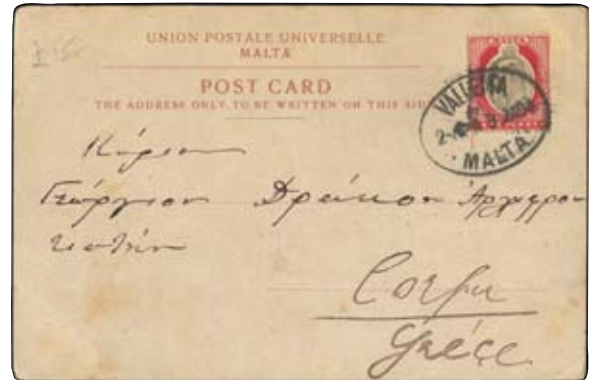 UNION POSTALE UNIVERSELLE
MALTA
POST CARD
THE ADDRESS ONLY TO BE WRITTEN ON THIS SIDE
VALLETTA
MALTA
Κύριον
Γεώργιον Δρακον
Corfu
Gréce